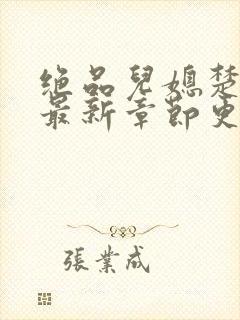 絕品兒媳楚
最新章節史
張業成